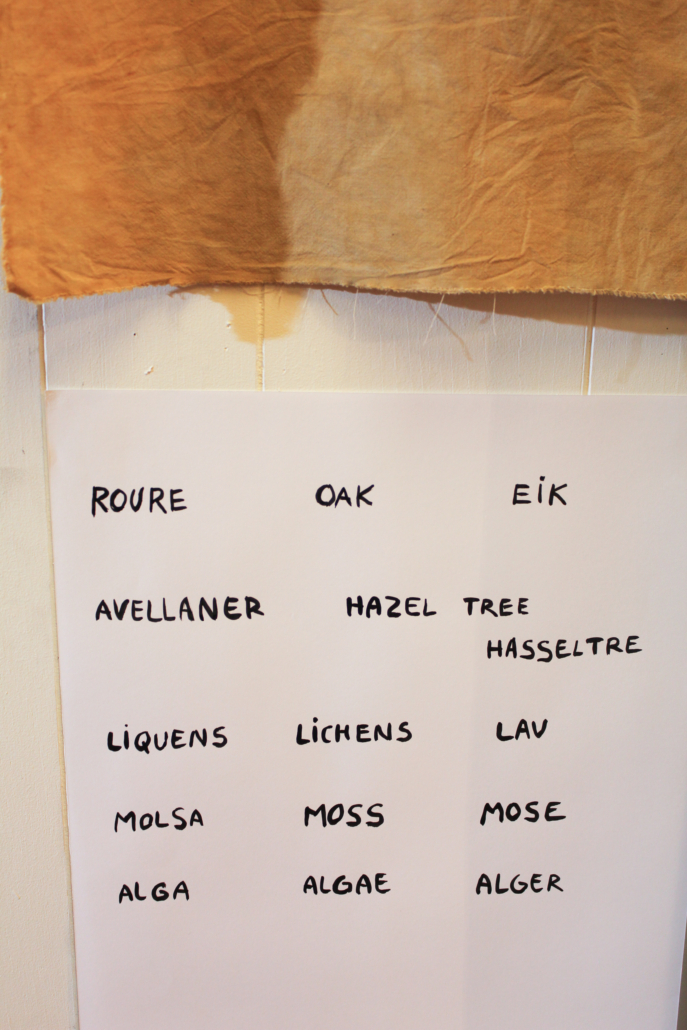 ROURE OAK EIK
AVELLANER HAZEL TREE
HASSELTRE
LIQUENS LICHENS LAV
MOLSA MOSS MOSE
ALGA ALGAE ALGER